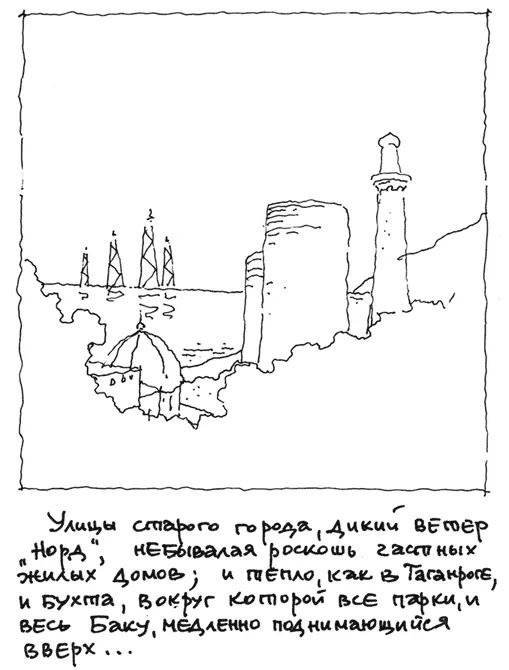 Улицы старого города, дикий ветер
„Норд“, небывалая роскошь частных
жилых домов; и тепло, как в Таганроге,
и бухта, вокруг которой все парки, и
весь Баку, медленно поднимающийся
вверх...